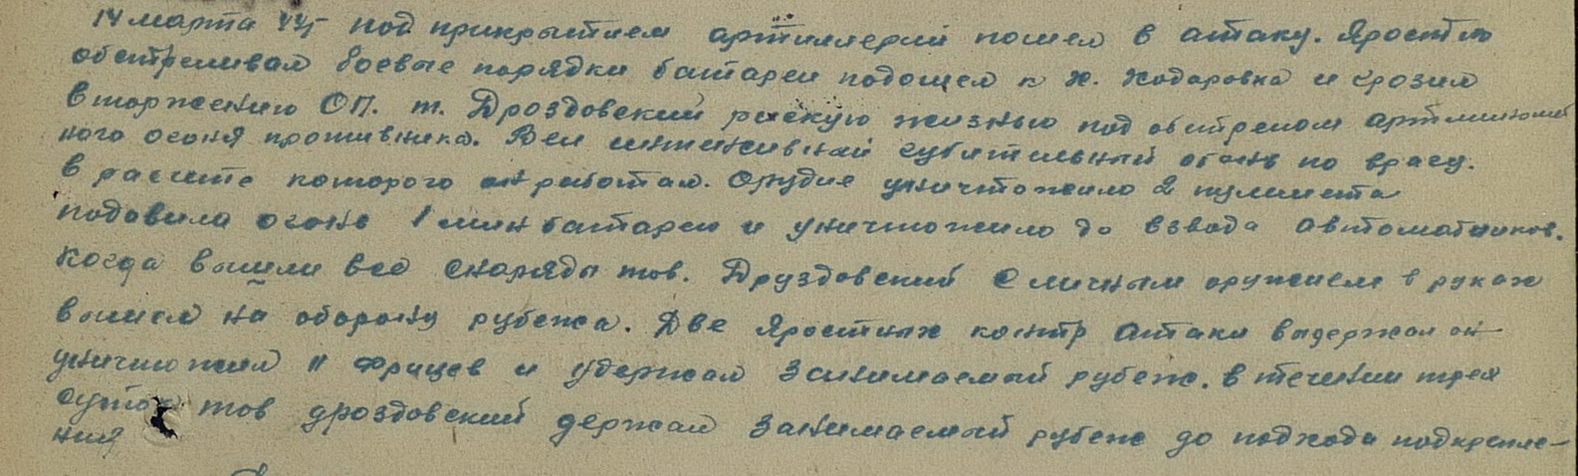 14 марта 44г под прикрытием артиллерии пошел в атаку. Яростно
обстреливая боевые порядки батареи подошел к Н. Ходоровка и грозил
вторжению ОП. т. Дроздовский рискую жизнью под обстрелом артминомет
ного огоня противника. Вел интенсивный губительный огонь по врагу.
в расчете которого он работал. Орудие уничтожило 2 пулимета
подавила огонь 1 мин батареи и уничтожило до взвода автоматчиков.
Когда вышли все снаряды тов. Друздовский с личным оружием в руках
вышел на оборону рубежа. Две яростных контр атаки выдержал он
уничтожил 11 фрицев и удержал занимаемый рубеж. в течении трех
суток тов дроздовский держал занимаемый рубеж до подхода подкрепле-
ния